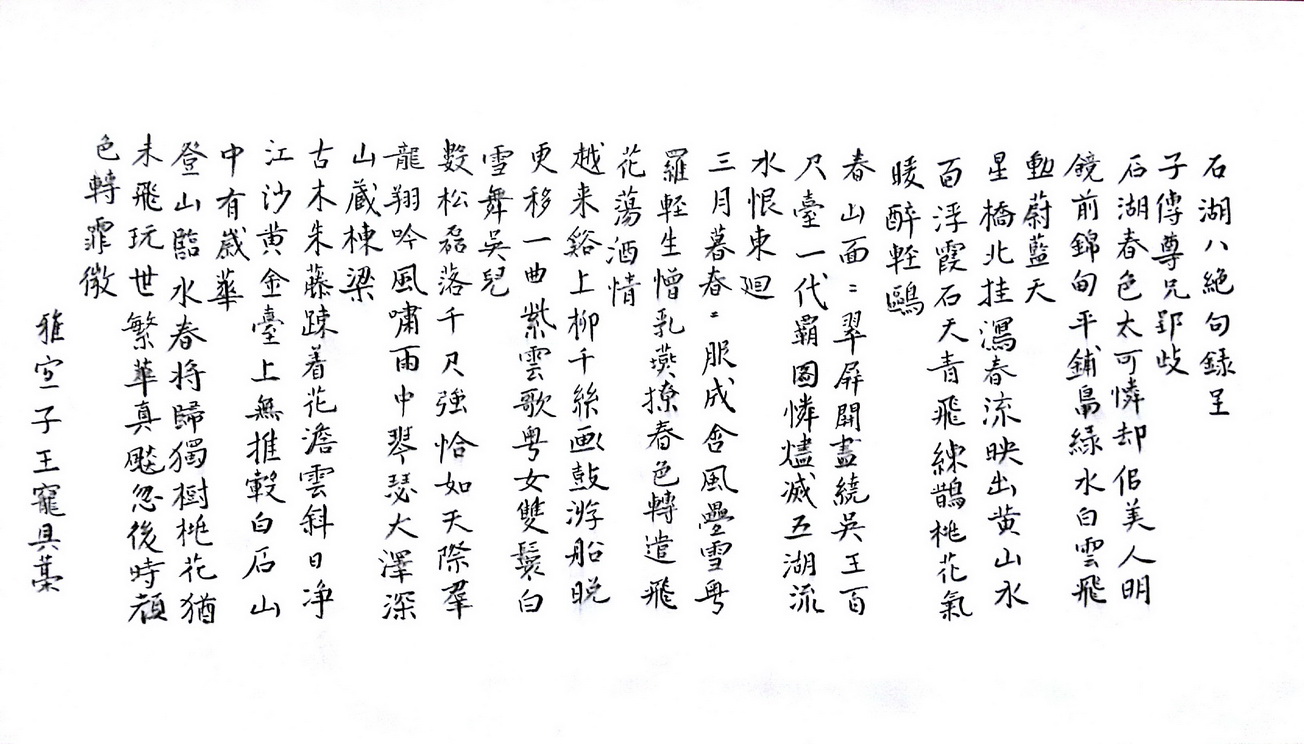 石湖八絶句録呈
子傳尊兄郢攺
石湖春色太可憐却侣美人明
鏡前錦甸平鋪鳧緑水白雲飛
動蔚藍天
星橋北挂瀉春流映出黄山水
面浮霞石天青飛練鵲桃花氣
暖醉輕鷗
春山面=翠屏開盡繞吳王百
尺臺一代霸圖憐燼滅五湖流
水恨東迴
三月暮春=服成含風疊雪粤
羅輕生憎乳燕撩春色轉遣飛
花蕩酒情
越来谿上柳千絲画鼓游船晚
更移一曲紫雲歌粤女雙鬟白
雪舞吳兒
數松磊落千尺強恰如天際群
龍翔吟風嘯雨中琴瑟大澤深
山蔵棟梁
古木朱藤踈着花澹雲斜日净
江沙黄金臺上無推轂白石山
中有歲華
登山臨水春将歸獨樹桃花猶
未飛玩世繁華真颷忽後時顔
色轉霏微
雅宜子王寵具藁